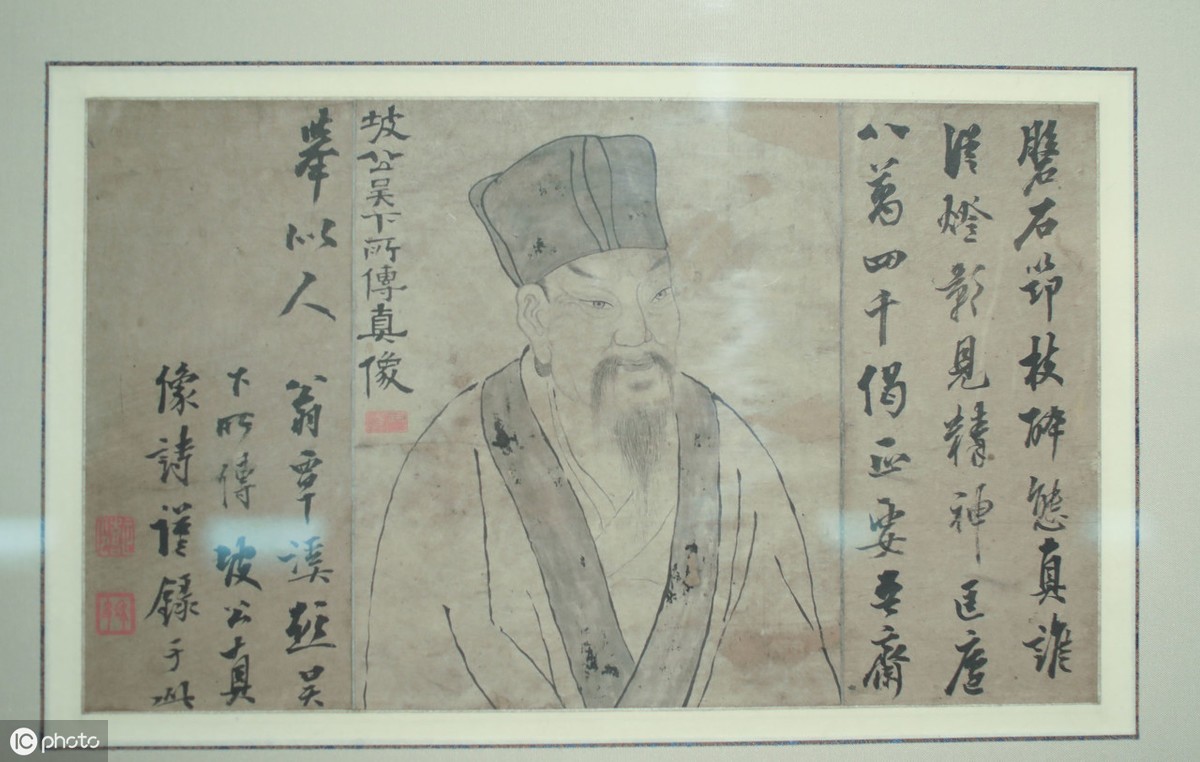 磐石筇枝醉態真誰
從燈影見精神匡廬
八萬四千偈正要吾齋
坡公吴下所傳真像
舉似人 翁覃溪題吴
下所傳坡公真
像詩謹錄于此
IC photo